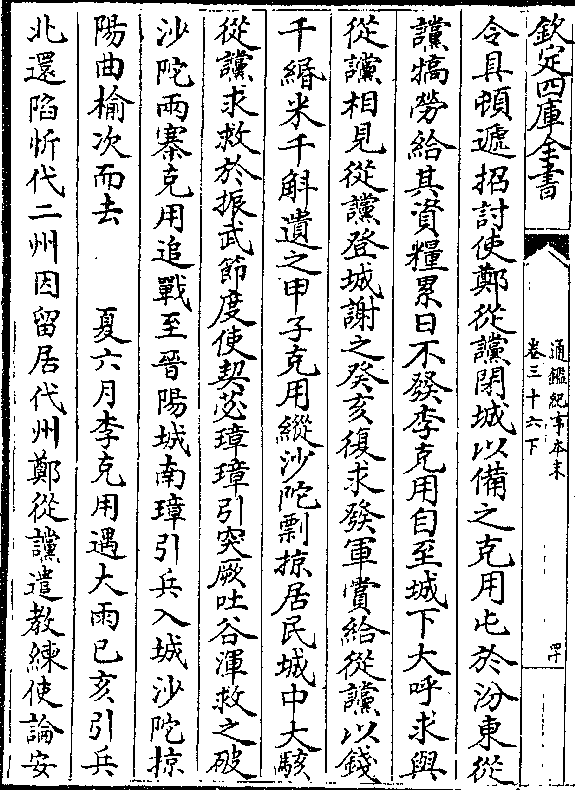 欽定四庫全書
通鑑紀事本末
卷三十六下
令具頓遞招討使鄭從讜閉城以備之克用屯於汾東從
讜犒勞給其資糧累日不發李克用自至城下大呼求與
從讜相見從讜登城謝之癸亥復求發軍賞給從讜以錢
千緡米千斛遺之甲子克用縱沙陀剽掠居民城中大駭
從讜求救於振武節度使契苾璋璋引突厥吐谷渾救之破
沙陀兩寨克用追戰至晉陽城南璋引兵入城沙陀掠
陽曲榆次而去 夏六月李克用遇大雨已亥引兵
北還陷忻代二州因留居代州鄭從讜遣教練使論安